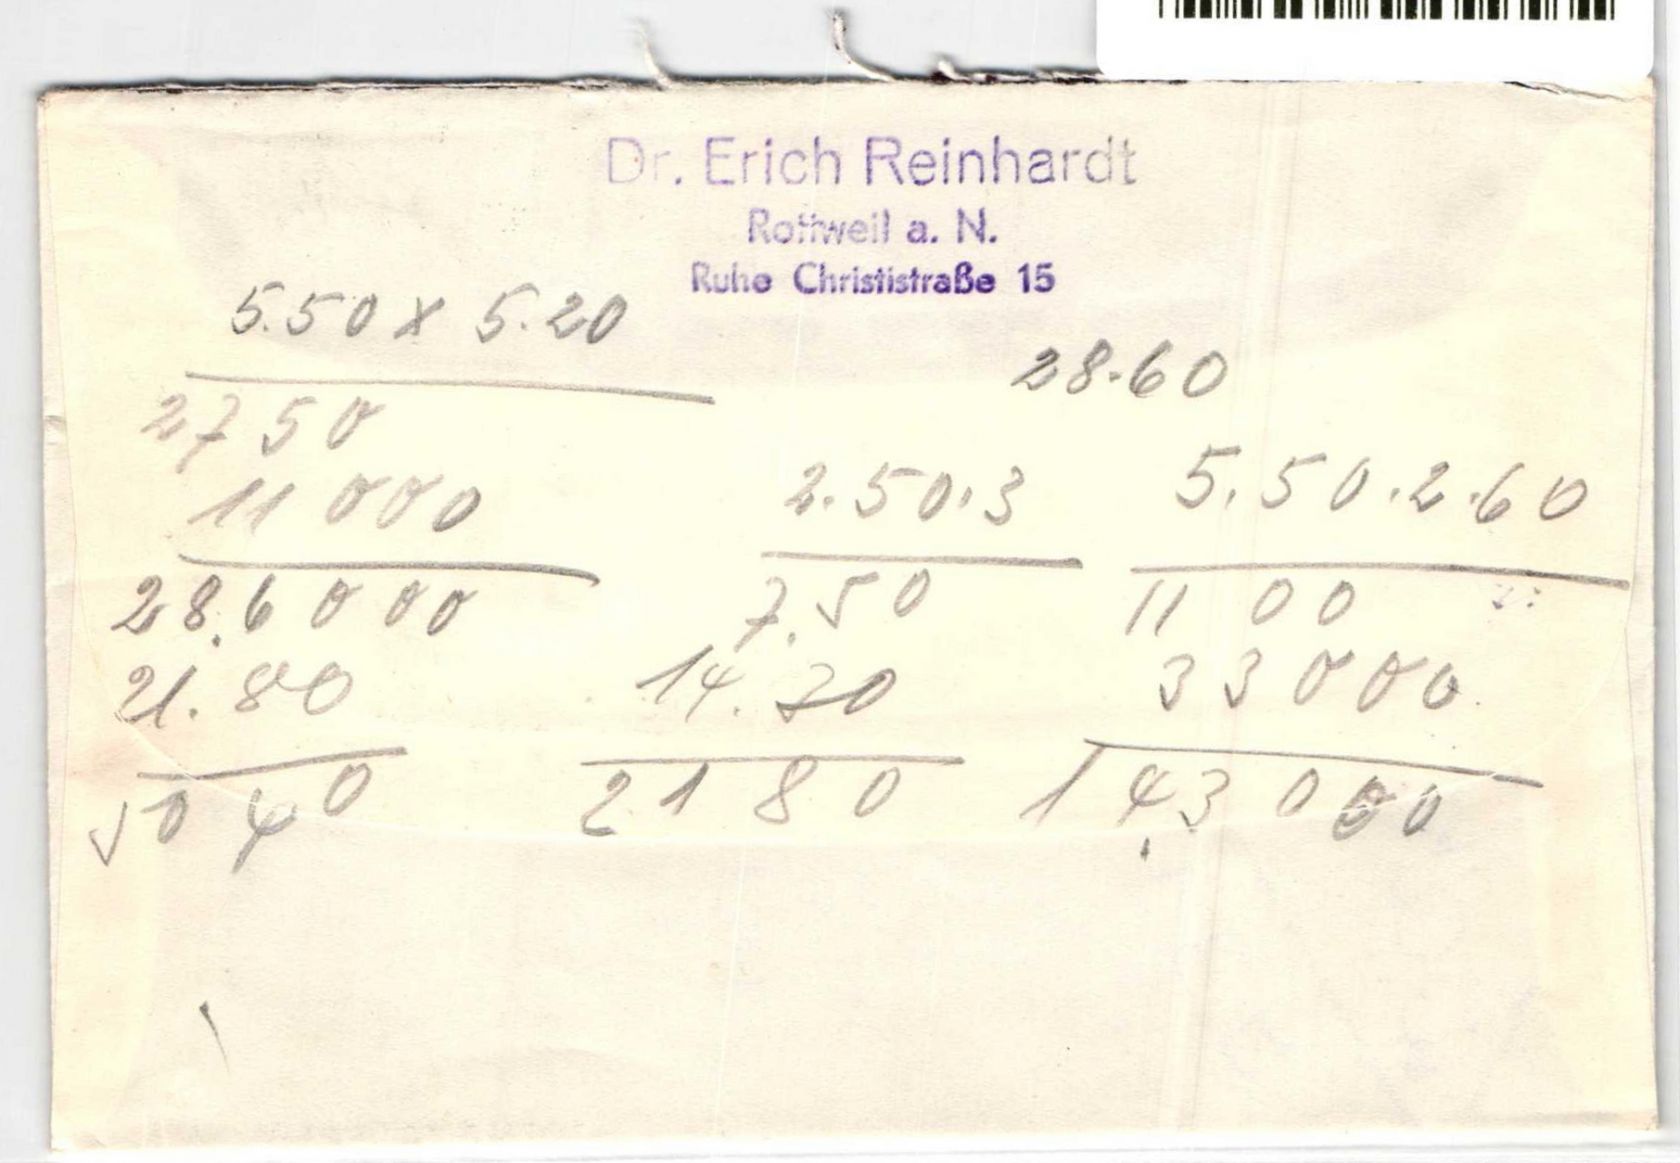 Dr. Erich Reinhardt
Rottweil a. N.
Ruhe Christistraße 15
5.50 x 5.20
2750
11000
28.6000
21.80
5040
28.60
2.50.3
7.50
14.30
2180
5.50.2.60
1100
33000
14.3000